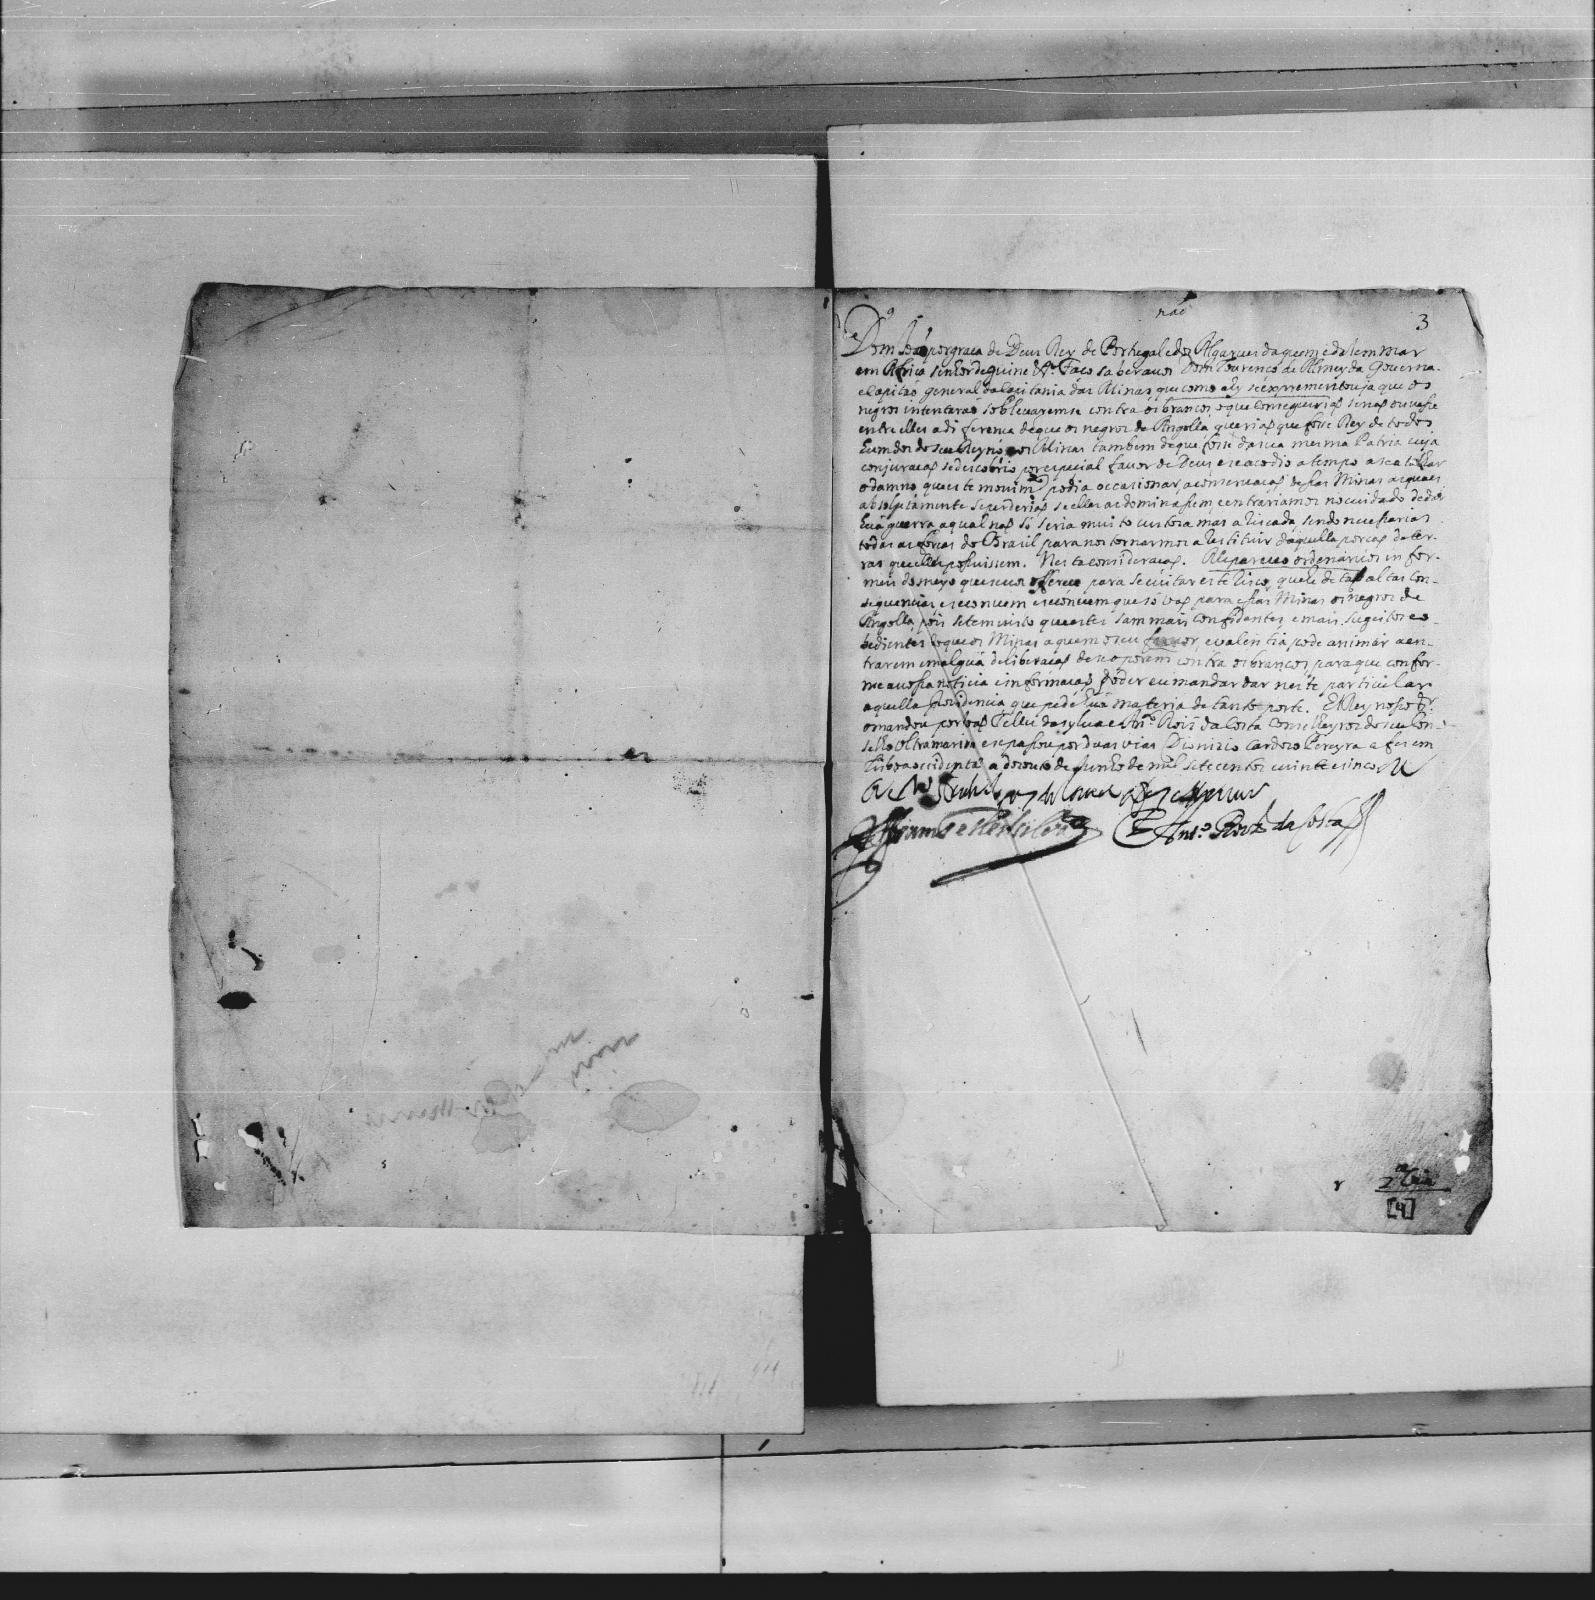 3
Dom João por graça de Deus Rey de Portugal e dos Algarves daquem e dalem mar
em Africa senhor de guine &ª. Faço saber a vos Dom Lourenço de Almeyda Governa-
e Capitão general da Capitania das Minas que como ahy se exprementou ja que os
negros intentarão sobllevaremse contra os brancos, o que conseguirião senão ouvesse
entre elles a diferença de que os negros de Angolla querião que fosse Rey de todos
hum dos do seu Reyno os Minas tambem de que fosse da sua mesma Patria cuja
conjuração se descobrio por especial favor de Deus e se acodio a tempo a se atalhar
o damno que este movim.to podia occasionar, a conservação dessas Minas as quaes
absolutamente se perderião se ellas as dominassem e entrariamos no cuidado de dar
huã guerra a qual não só seria muito custoza mas aRiscada sendo necessarias
todas as forças do Brasil para nos tornarmos a Restituir daquella porção de ter-
ras que elles possuissem. Nesta consideração. Me pareceo ordenarvos in for-
meis do meyo que se vos offerece para se evitar este Risco, que he de tão altas con-
sequencias e se convem que só vão para essas Minas os negros de
Angolla, pois se tem visto que estes sam mais confidentes e mais sugeitos e o-
bedientes do que os Minas a quem o seu furor, e valentia pode animar a en-
trarem em algũa deliberação de se oporem contra os brancos, para que confor-
me a vossa noticia e informação poder eu mandar dar neste particular
aquella providencia que pede huã materia de tanto porte. El Rey nosso Sr.
o mandou por João Telles da Sylva e Ant.º Rois da Costa Conselheyros do seu Con-
selho Ultramarino e se passou por duas vias Dionizio Cardozo Pereyra a fes em
Lisboa occidental a dezouto de Junho de mil setecentos e vinte e sinco
Ant.º Roiz da Costa
2ª via
[4]